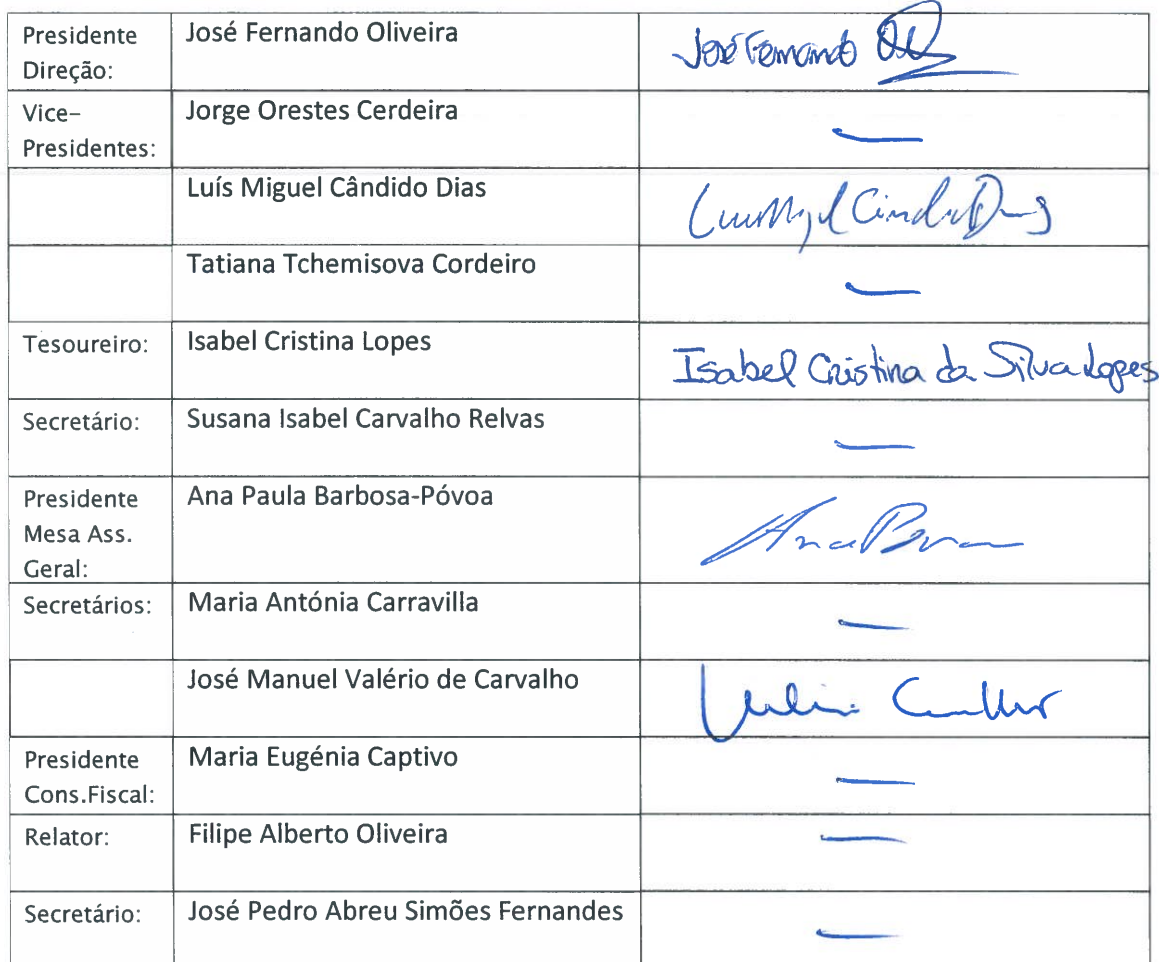 Presidente
Direção:
José Fernando Oliveira
José Fernando
Vice-
Presidentes:
Jorge Orestes Cerdeira
—
Luís Miguel Cândido Dias
Tatiana Tchemisova Cordeiro
—
Tesoureiro:
Isabel Cristina Lopes
Isabel Cristina da Silva Lopes
Secretário:
Susana Isabel Carvalho Relvas
—
Presidente
Mesa Ass.
Geral:
Ana Paula Barbosa-Póvoa
Secretários:
Maria Antónia Carravilla
—
José Manuel Valério de Carvalho
Presidente
Cons.Fiscal:
Maria Eugénia Captivo
—
Relator:
Filipe Alberto Oliveira
—
Secretário:
José Pedro Abreu Simões Fernandes
—